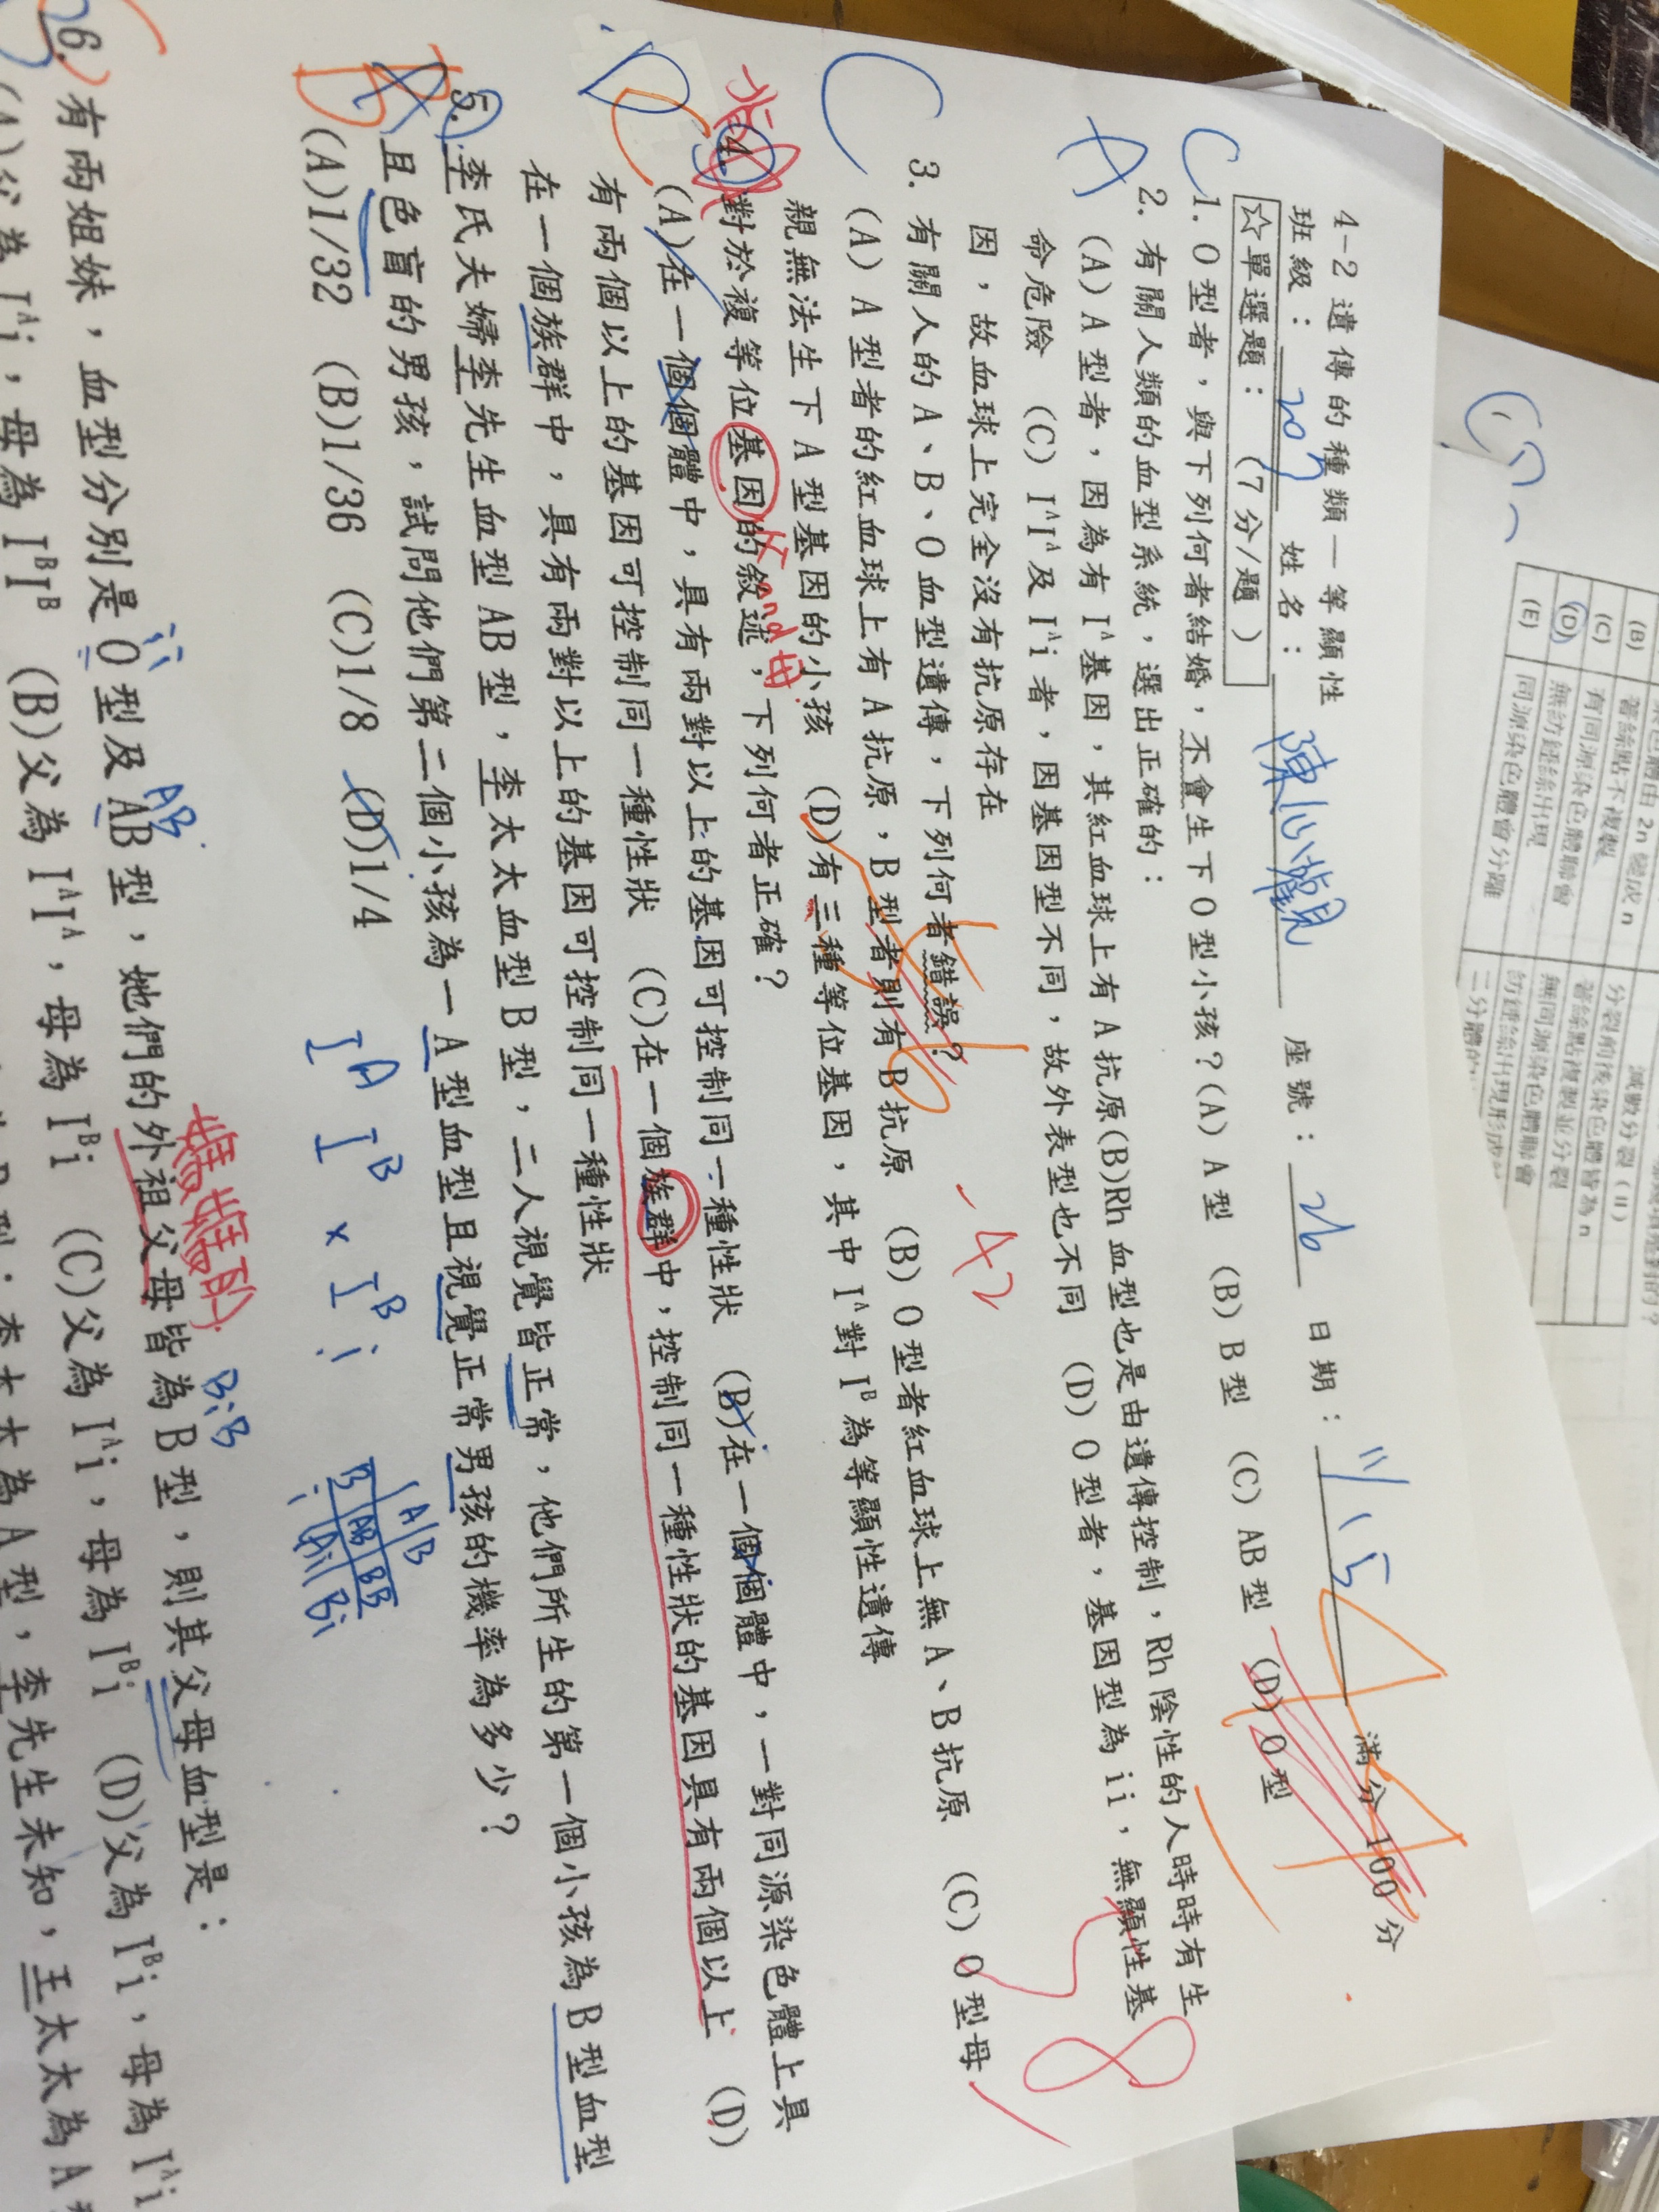 4-2 遺傳的種類—等顯性
班級：209 姓名： 座號：26 日期：11/5 滿分 100 分
☆單選題：(7 分/題)
C 1. O 型者，與下列何者結婚，不會生下 O 型小孩？(A) A 型 (B) B 型 (C) AB 型 (D) O 型
A 2. 有關人類的血型系統，選出正確的：
(A) A 型者，因為有 Iᴬ 基因，其紅血球上有 A 抗原(B)Rh 血型也是由遺傳控制，Rh 陰性的人時時有生
命危險 (C) IᴬIᴬ 及 Iᴬi 者，因基因型不同，故外表型也不同 (D) O 型者，基因型為 ii，無顯性基
因，故血球上完全沒有抗原存在
C 3. 有關人的 A、B、O 血型遺傳，下列何者錯誤？
(A) A 型者的紅血球上有 A 抗原，B 型者則有 B 抗原 (B) O 型者紅血球上無 A、B 抗原 (C) O 型母
親無法生下 A 型基因的小孩 (D)有三種等位基因，其中 Iᴬ 對 Iᴮ 為等顯性遺傳
-42
58
4. 對於複等位基因的敘述，下列何者正確？
(A)在一個個體中，具有兩對以上的基因可控制同一種性狀 (B)在一個個體中，一對同源染色體上具
有兩個以上的基因可控制同一種性狀 (C)在一個族群中，控制同一種性狀的基因具有兩個以上 (D)
在一個族群中，具有兩對以上的基因可控制同一種性狀
5. 李氏夫婦李先生血型 AB 型，李太太血型 B 型，二人視覺皆正常，他們所生的第一個小孩為 B 型血型
且色盲的男孩，試問他們第二個小孩為一 A 型血型且視覺正常男孩的機率為多少？
(A)1/32 (B)1/36 (C)1/8 (D)1/4
Iᴬ Iᴮ × Iᴮ i
A B
B AB BB
i Ai Bi
ii AB 媽媽的 BiB
6. 有兩姐妹，血型分別是 O 型及 AB 型，她們的外祖父母皆為 B 型，則其父母血型是：
(A)父為 Iᴬi，母為 IᴮIᴮ (B)父為 IᴬIᴬ，母為 Iᴮi (C)父為 Iᴬi，母為 Iᴮi (D)父為 Iᴮi，母為 Iᴬi
李太太為 A 型，李先生未知，王太太為 A
(B)
(C)
(D)
(E)
色體由 2n 變成 n
著絲點不複製
有同源染色體聯會
無紡錘絲出現
同源染色體會分離
減數分裂 (II)
分裂前後染色體皆為 n
著絲點複製並分裂
無同源染色體聯會